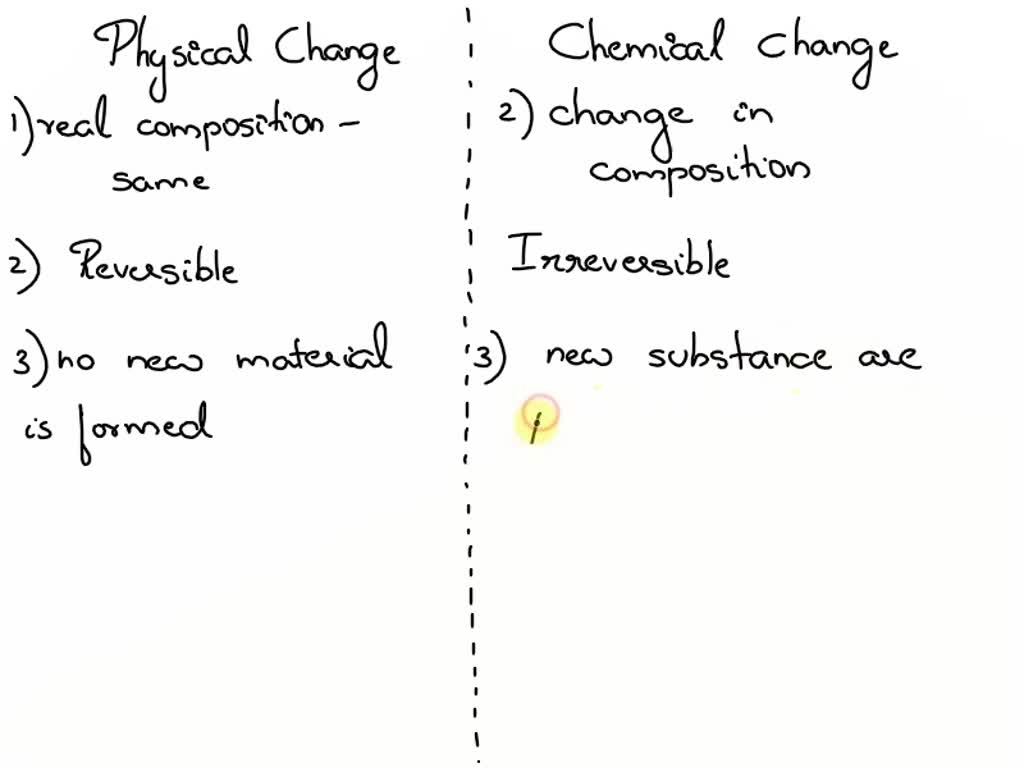 Physical Change
1) real composition -
same
2) Reversible
3) no new material
is formed
Chemical change
2) change in
composition
Irreversible
3) new substance are